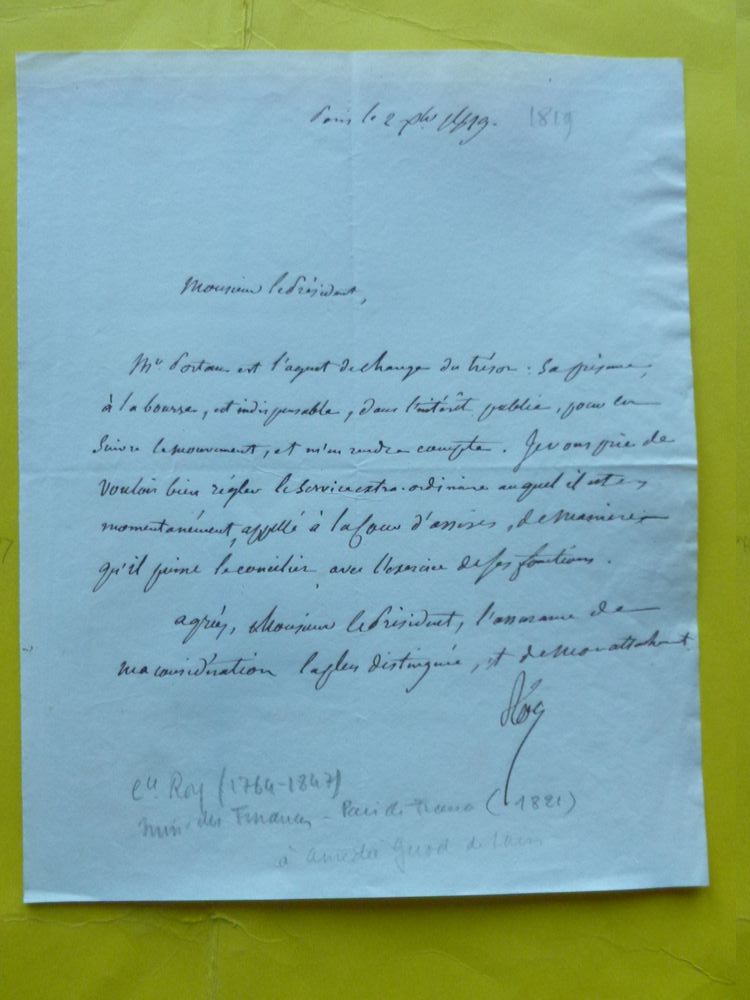 Paris le 2 xbre 1819. 1819
Monsieur le Président,
Mr. Portau est l'agent de change du trésor : Sa présence,
à la bourse, est indispensable, dans l'intérêt public, pour en
Suivre le mouvement, et m'en rendre compte. Je vous prie de
vouloir bien régler le service extra-ordinaire auquel il est
momentanément, appellé à la Cour d'assises, de manière
qu'il puisse le concilier avec l'exercice de ses fonctions.
agréez, Monsieur le Président, l'assurance de
ma considération la plus distinguée, et de mon attachement
Roy
Cte Roy (1764-1847)
Min. des Finances - Pair de France (1821)
à Amédée Girod de l'Ain